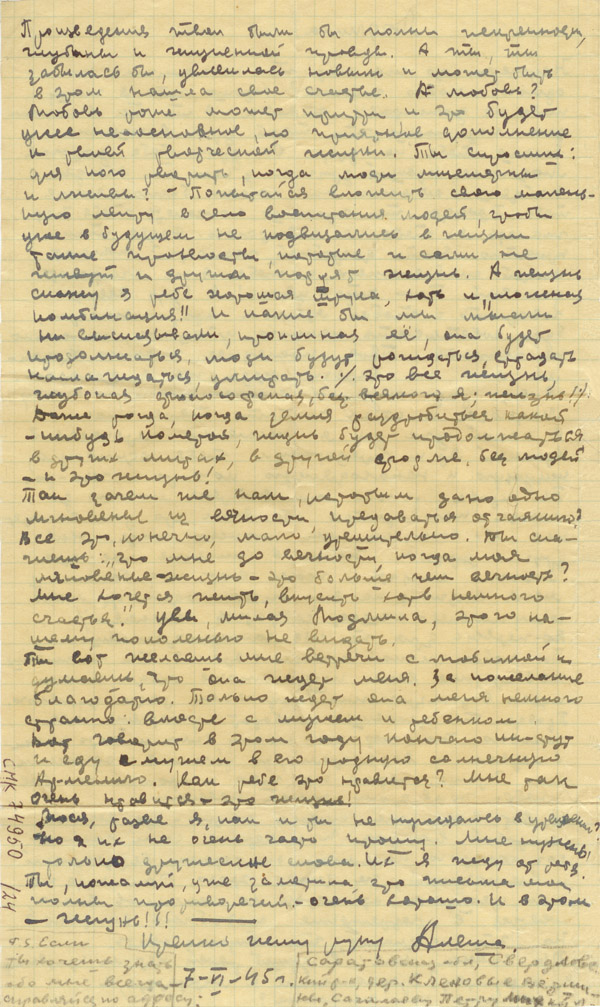 Произведения твои были бы полны искренности,
глубины и жизненной правды. А ты, ты
забылась бы, увлеклась новым и может быть
в этом нашла свое счастье. А любовь?
Любовь тоже может притти и это будет
уже неосновное, но приятное дополнение
к твоей творческой жизни. Ты спросишь:
для кого творить, когда люди
и лживы? – Попытайся вложить свою малень-
кую лепту в дело воспитания людей, чтобы
уже в будущем не подвизались в жизни
такие которые и сами не
живут и другим портят жизнь. А жизнь
скажу я тебе хорошая штука, хоть и "сложная
комбинация"! И какие бы мы мысли
ни высказывали, проклиная её, она будет
продолжаться, люди будут рождаться, страдать
наслаждаться, умирать. Это все жизнь,
глубокая философская, без всякого я; жизнь!
Даже тогда, когда земля раздробиться какой
-нибудь кометой, жизнь будет продолжаться
в других мирах, в другой форме, без людей
– и это жизнь!
Так зачем же нам, которым дано одно
мгновенье из вечности, предаваться отчаянию?
Все это, конечно, мало утешительно. Ты ска-
жешь: "что мне до вечности, когда моя
мгновение-жизнь – это больше чем вечность?
Мне хочется жить, вкусить хоть немного
счастья." Увы, милая Людмила, этого на-
шему поколенью не видать.
Ты вот желаешь мне встречи с любимой и
думаешь, что она ждет меня. За пожелание
благодарю. Только ждет она меня немного
странно: вместе с мужем и ребенком.
Вот говорит в этом году кончаю ин-тут
и еду с мужем в его родную солнечную
Армению. Как тебе это нравится? Мне так
очень нравится – это жизнь!
Люся, разве я, как и ты не нуждаюсь в утешении?
Но я их не очень часто прошу. Мне нужны
только дружеские слова. Их я жду от тебя.
Ты, пожалуй, уже заметила, что письма мои
полны противоречий – очень хорошо. И в этом
– жизнь!!!
Крепко жму руку Алеша.
7-VI-45 г.
P.S. Если
ты хочешь знать
обо мне всегда –
справляйся по адресу:
Саратовская обл., Свердловс-
кий р-н, дер. Кленовые
Петру
СМК 74950/24